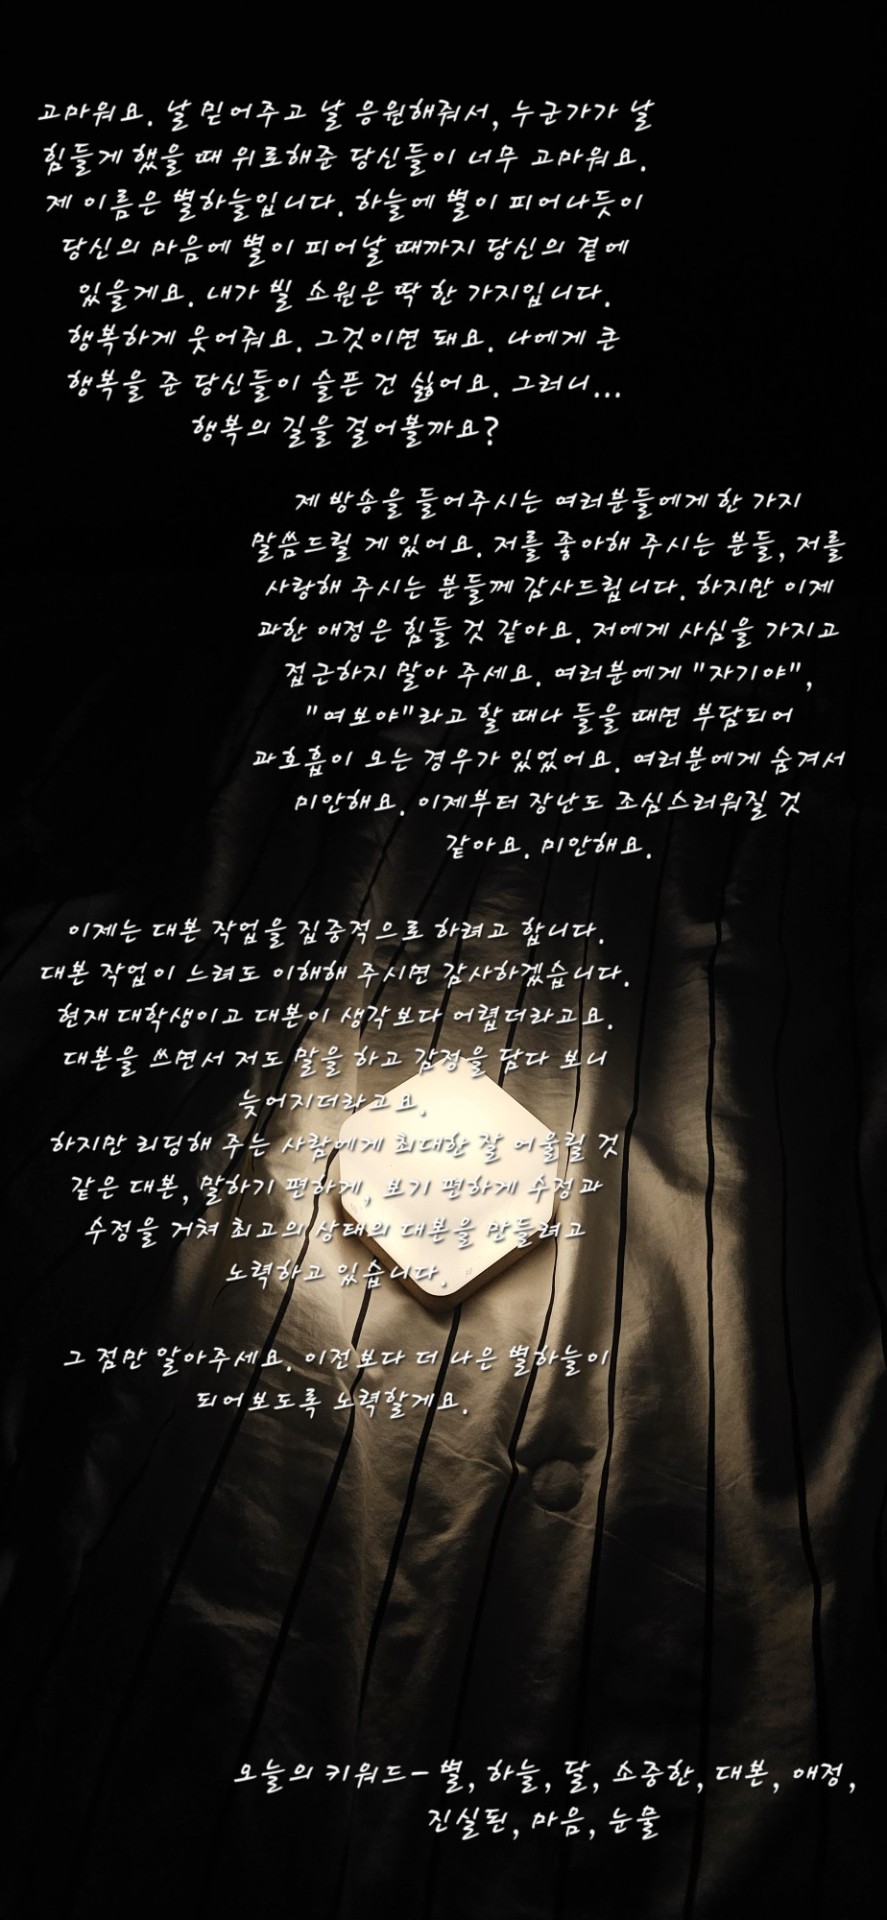 고마워요. 날 믿어주고 날 응원해줘서, 누군가가 날
힘들게 했을 때 위로해준 당신들이 너무 고마워요.
제 이름은 별하늘입니다. 하늘에 별이 피어나듯이
당신의 마음에 별이 피어날 때까지 당신의 곁에
있을게요. 내가 빌 소원은 딱 한 가지입니다.
행복하게 웃어줘요. 그것이면 돼요. 나에게 큰
행복을 준 당신들이 슬픈 건 싫어요. 그러니...
행복의 길을 걸어볼까요?
제 방송을 들어주시는 여러분들에게 한 가지
말씀드릴 게 있어요. 저를 좋아해 주시는 분들, 저를
사랑해 주시는 분들께 감사드립니다. 하지만 이제
과한 애정은 힘들 것 같아요. 저에게 사심을 가지고
접근하지 말아 주세요. 여러분에게 "자기야",
"여보야"라고 할 때나 들을 때면 부담되어
과호흡이 오는 경우가 있었어요. 여러분에게 숨겨서
미안해요. 이제부터 장난도 조심스러워질 것
같아요. 미안해요.
이제는 대본 작업을 집중적으로 하려고 합니다.
대본 작업이 느려도 이해해 주시면 감사하겠습니다.
현재 대학생이고 대본이 생각보다 어렵더라고요.
대본을 쓰면서 저도 말을 하고 감정을 담다 보니
늦어지더라고요.
하지만 리딩해 주는 사람에게 최대한 잘 어울릴 것
같은 대본, 말하기 편하게, 보기 편하게 수정과
수정을 거쳐 최고의 상태의 대본을 만들려고
노력하고 있습니다.
그 점만 알아주세요. 이전보다 더 나은 별하늘이
되어보도록 노력할게요.
오늘의 키워드- 별, 하늘, 달, 소중한, 대본, 애정,
진실된, 마음, 눈물